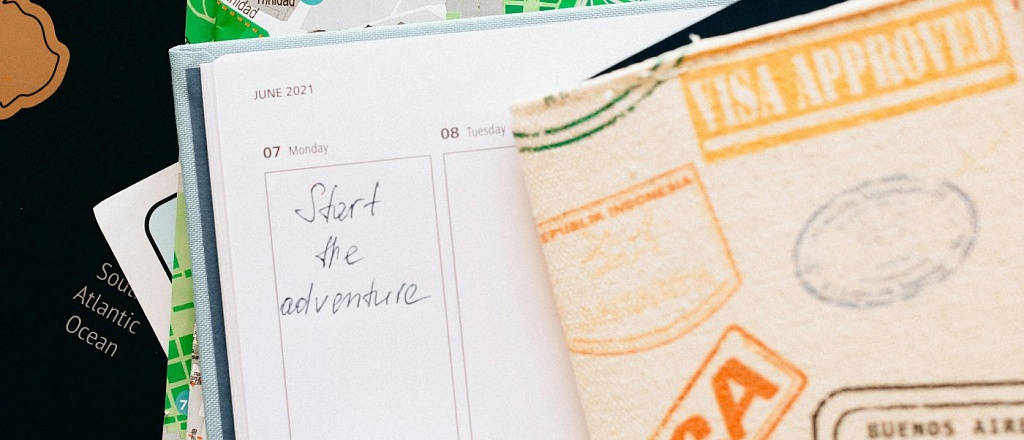 Trinidad
JUNE 2021
07 Monday
08 Tuesday
Start
the
adventure
South
Atlantic
Ocean
7
VISA APPROVED
REPUBLIK INDONESIA
BUENOS AIRE